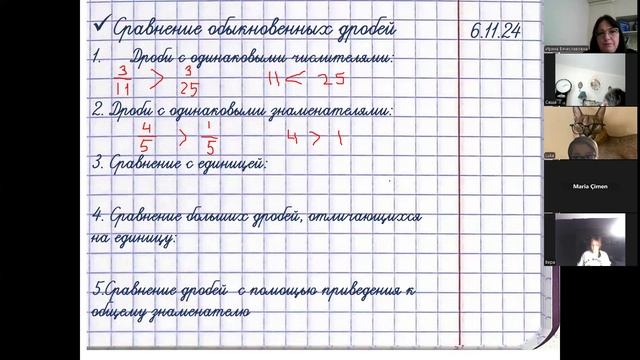 ✓ Сравнение обыкновенных дробей 6.11.24
1. Дроби с одинаковыми числителями:
3/11 > 3/25 11 < 25
2. Дроби с одинаковыми знаменателями:
4/5 > 1/5 4 > 1
3. Сравнение с единицей:
4. Сравнение больших дробей, отличающихся
на единицу:
5.Сравнение дробей с помощью приведения к
общему знаменателю
Ирина Вячеславовна
Саша
Maria Çimen
Вера